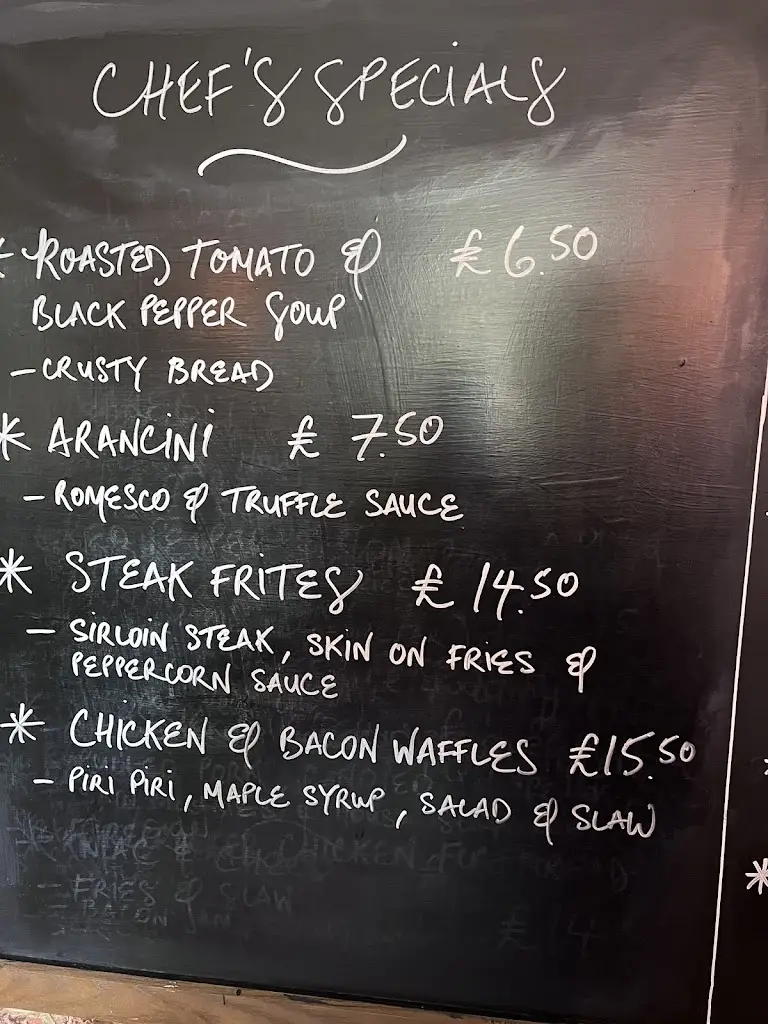 CHEF'S SPECIALS
* ROASTED TOMATO & £6.50
BLACK PEPPER SOUP
- CRUSTY BREAD
* ARANCINI £ 7.50
- ROMESCO & TRUFFLE SAUCE
* STEAK FRITES £ 14.50
- SIRLOIN STEAK, SKIN ON FRIES &
PEPPERCORN SAUCE
* CHICKEN & BACON WAFFLES £15.50
- PIRI PIRI, MAPLE SYRUP, SALAD & SLAW
CHICKEN
- FRIES & SLAW
£14